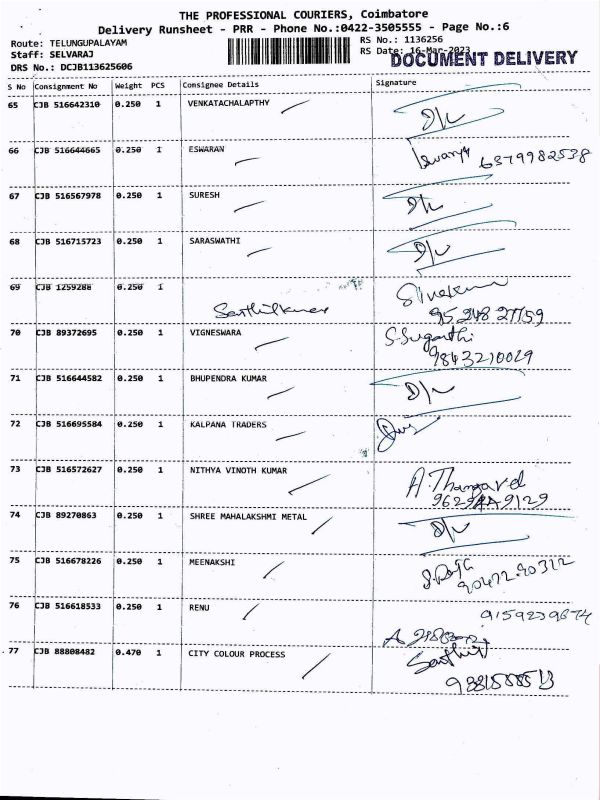 THE PROFESSIONAL COURIERS, Coimbatore
Delivery Runsheet - PRR - Phone No.:0422-3505555 - Page No.:6
Route: TELUNGUPALAYAM RS No.: 1136256
Staff: SELVARAJ RS Date: 16-Mar-2023
DOCUMENT DELIVERY
DRS No.: DCJB113625606
S No Consignment No Weight PCS Consignee Details Signature
65 CJB 516642310 0.250 1 VENKATACHALAPTHY D/L
66 CJB 516644665 0.250 1 ESWARAN 6379982538
67 CJB 516567978 0.250 1 SURESH D/L
68 CJB 516715723 0.250 1 SARASWATHI D/L
69 CJB 1259286 0.250 1
95248 27159
70 CJB 89372695 0.250 1 VIGNESWARA S.Suganthi
9843210029
71 CJB 516644582 0.250 1 BHUPENDRA KUMAR D/L
72 CJB 516695584 0.250 1 KALPANA TRADERS
73 CJB 516572627 0.250 1 NITHYA VINOTH KUMAR A.Thangavel
74 CJB 89270863 0.250 1 SHREE MAHALAKSHMI METAL D/L
75 CJB 516678226 0.250 1 MEENAKSHI S.Raja
90472 90312
76 CJB 516618533 0.250 1 RENU 9159239674
77 CJB 88808482 0.470 1 CITY COLOUR PROCESS